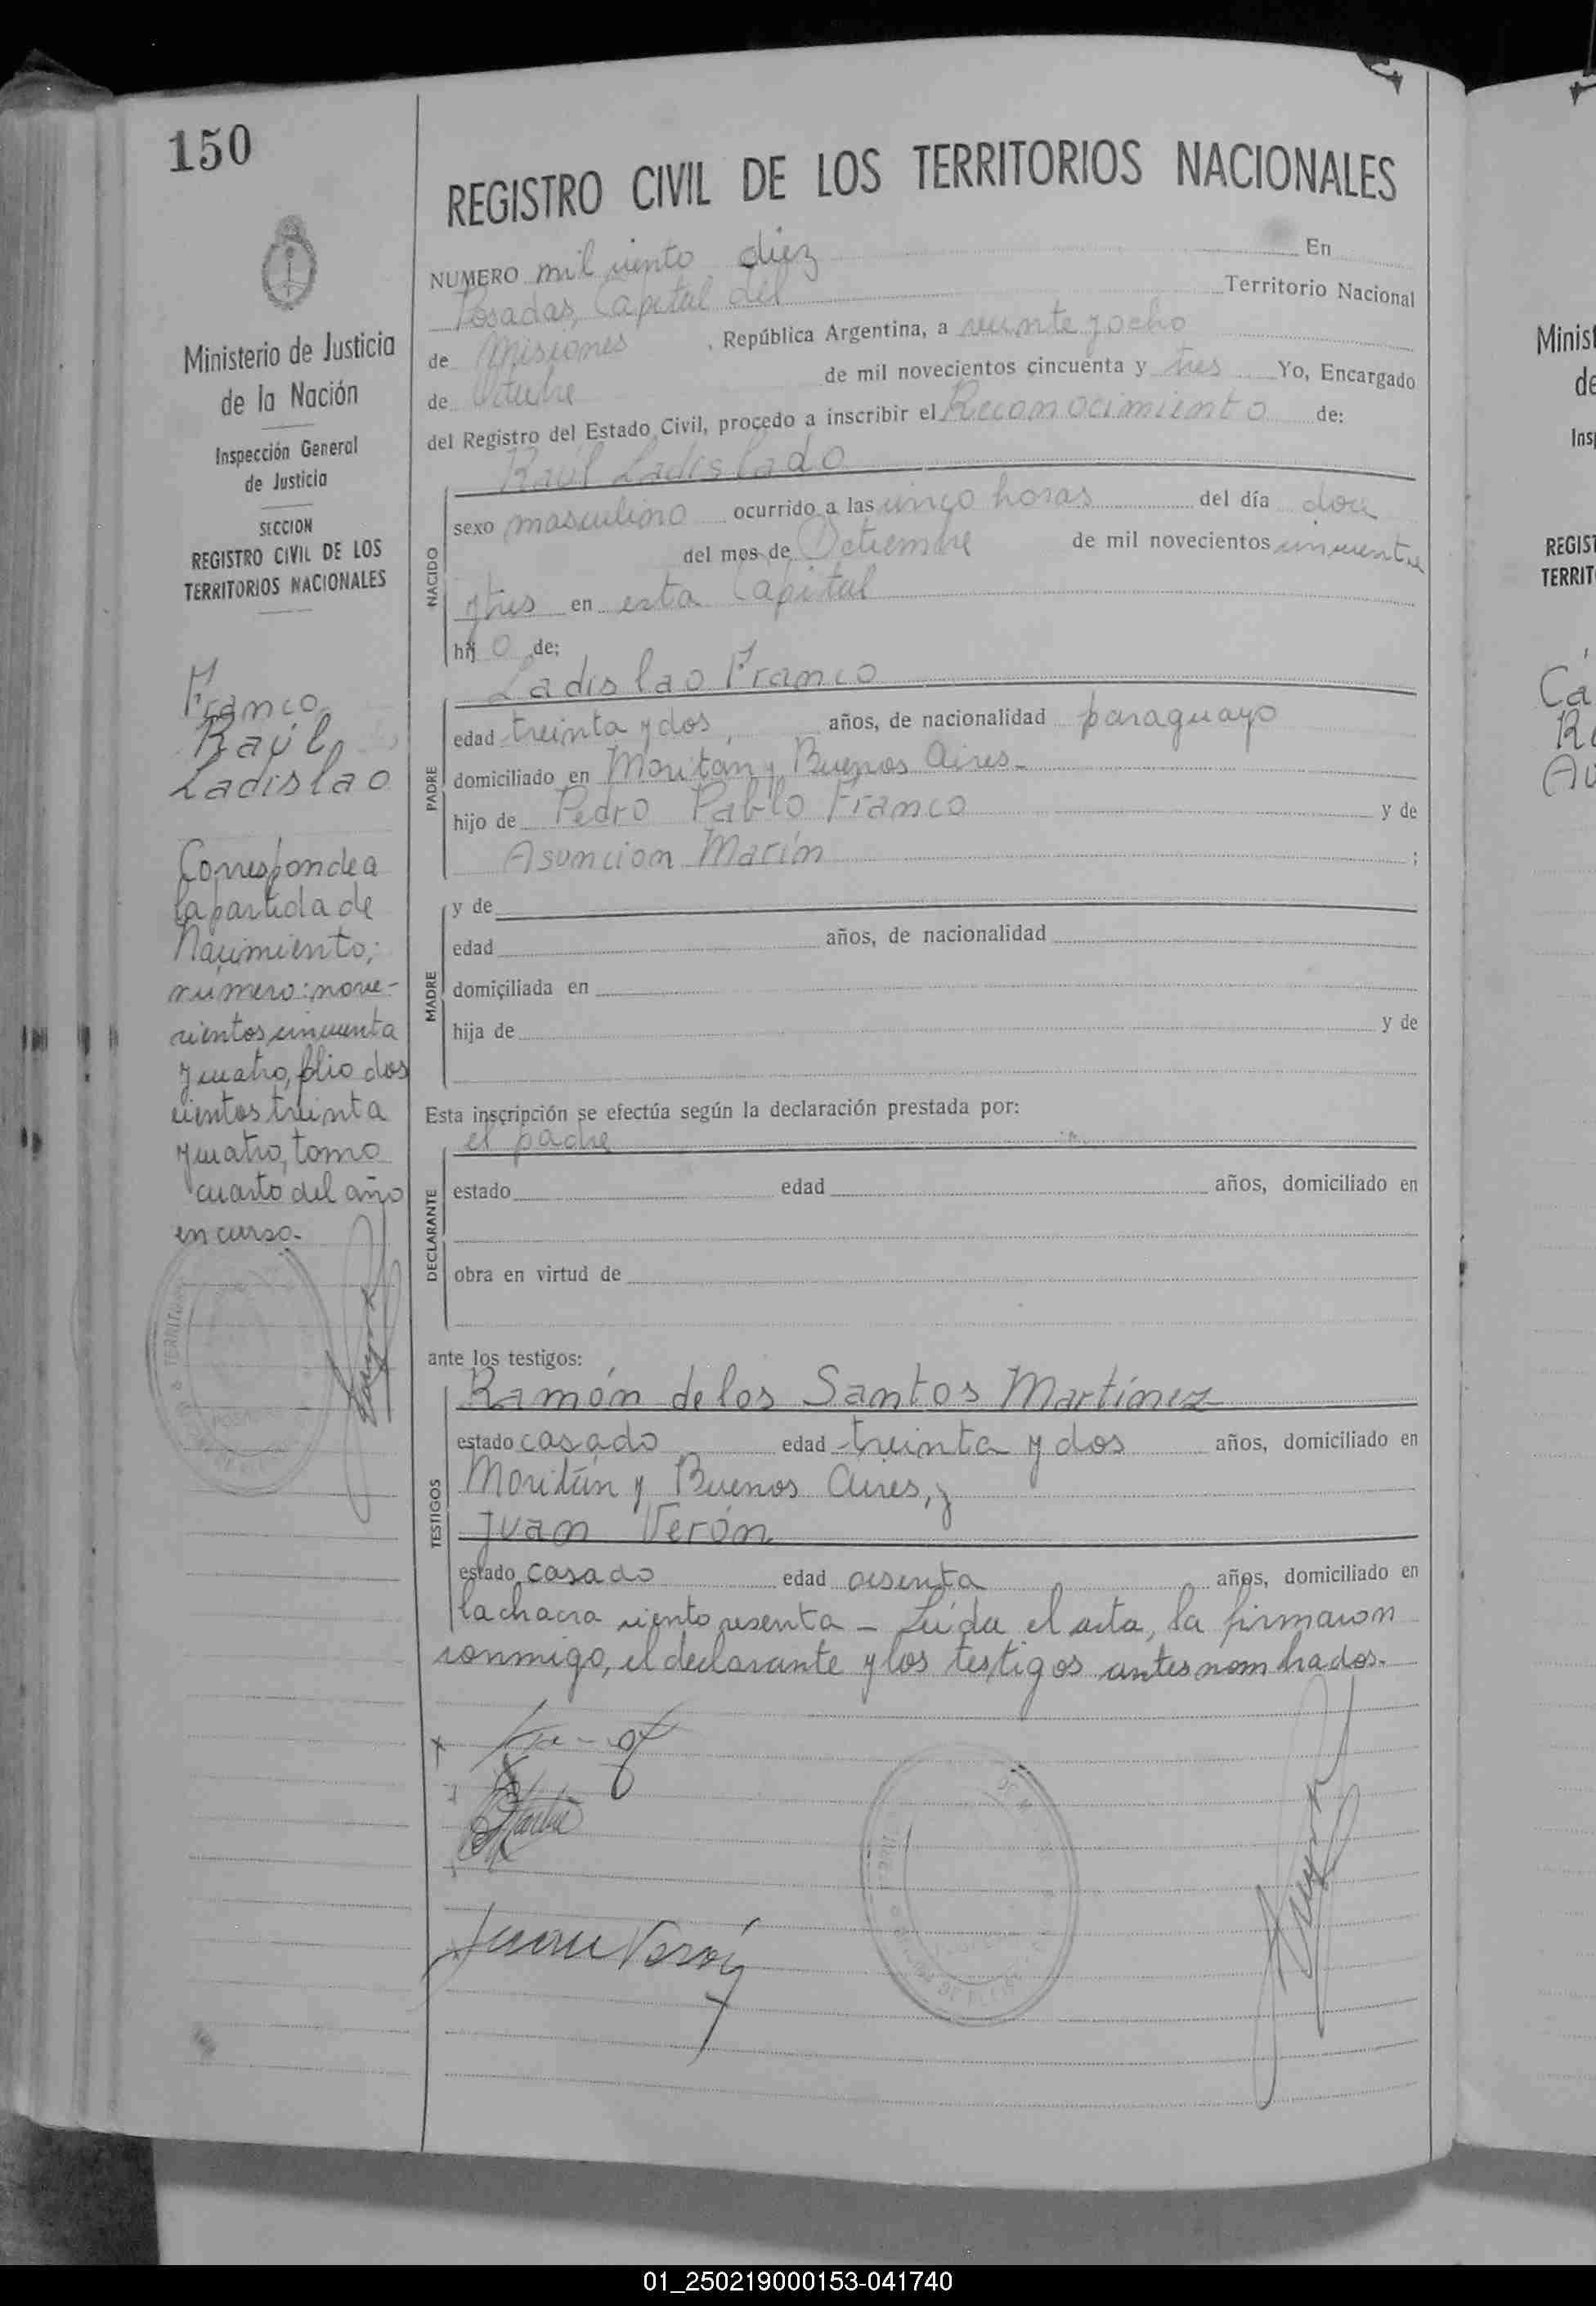 150
REGISTRO CIVIL DE LOS TERRITORIOS NACIONALES
NUMERO mil ciento diez En
Posadas, Capital del Territorio Nacional
de Misiones, República Argentina, a veinte y ocho
de Octubre de mil novecientos cincuenta y tres Yo, Encargado
del Registro del Estado Civil, procedo a inscribir el Reconocimiento de:
Raúl Ladislado
NACIDO
sexo masculino ocurrido a las cinco horas del día doce
del mes de de mil novecientos cincuenta
y tres en esta Capital
hij o de:
Ladislao Franco
PADRE
edad treinta y dos, años, de nacionalidad paraguayo
domiciliado en Moritán y Buenos Aires-
hijo de Pedro Pablo Franco y de
Asuncion Marín ;
MADRE
y de
edad años, de nacionalidad
domiciliada en
hija de y de
Esta inscripción se efectúa según la declaración prestada por:
el padre
DECLARANTE
estado edad años, domiciliado en
obra en virtud de
ante los testigos:
TESTIGOS
Ramón de los Santos Martínez
estado casado edad treinta y dos años, domiciliado en
Moritán y Buenos Aires, y
Juan Verón
estado casado edad sesenta años, domiciliado en
la chacra ciento sesenta - Leída el acta, la firmaron
conmigo, el declarante y los testigos antes nombrados.-
Juan Verón
Ministerio de Justicia
de la Nación
Inspección General
de Justicia
SECCION
REGISTRO CIVIL DE LOS
TERRITORIOS NACIONALES
Franco
Raúl
Ladislao
Corresponde a
la partida de
Nacimiento;
número: nove-
cientos cincuenta
y cuatro, folio dos
cientos treinta
y cuatro, tomo
cuarto del año
en curso.-
Minist
de
Ins
REGIST
TERRIT
01_250219000153-041740